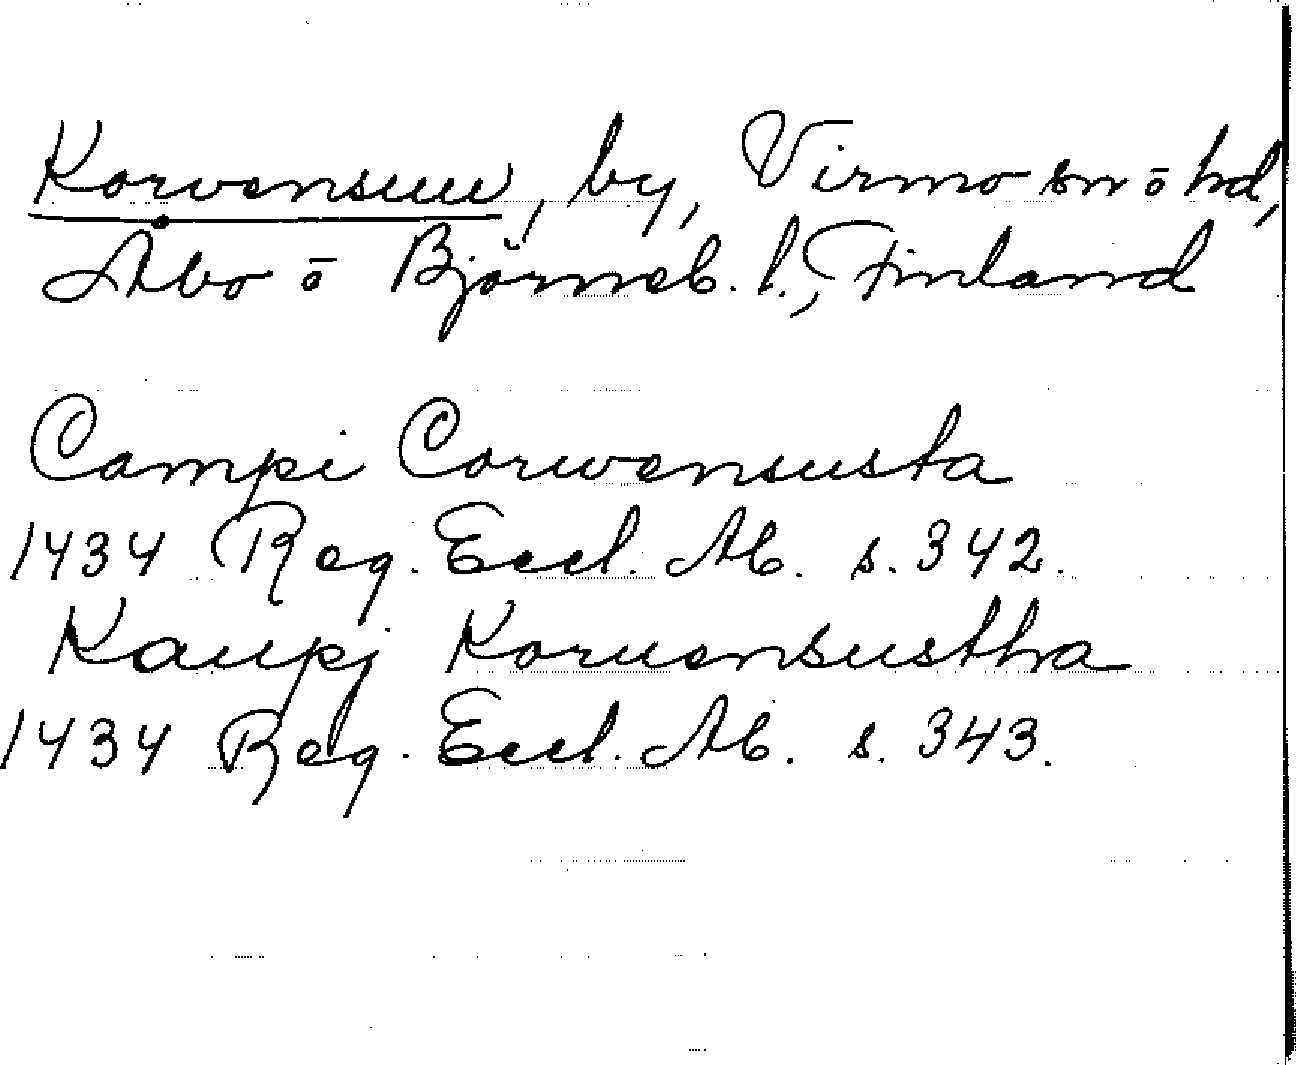 Korvensuu, by, Virmo sn ō hd,
Åbo ō Björneb. l., Finland
Campi Corwensusta
1434 Reg. Eccl. Ab. s. 342.
Kaupj Koruensustha
1434 Reg. Eccl. Ab. s. 343.